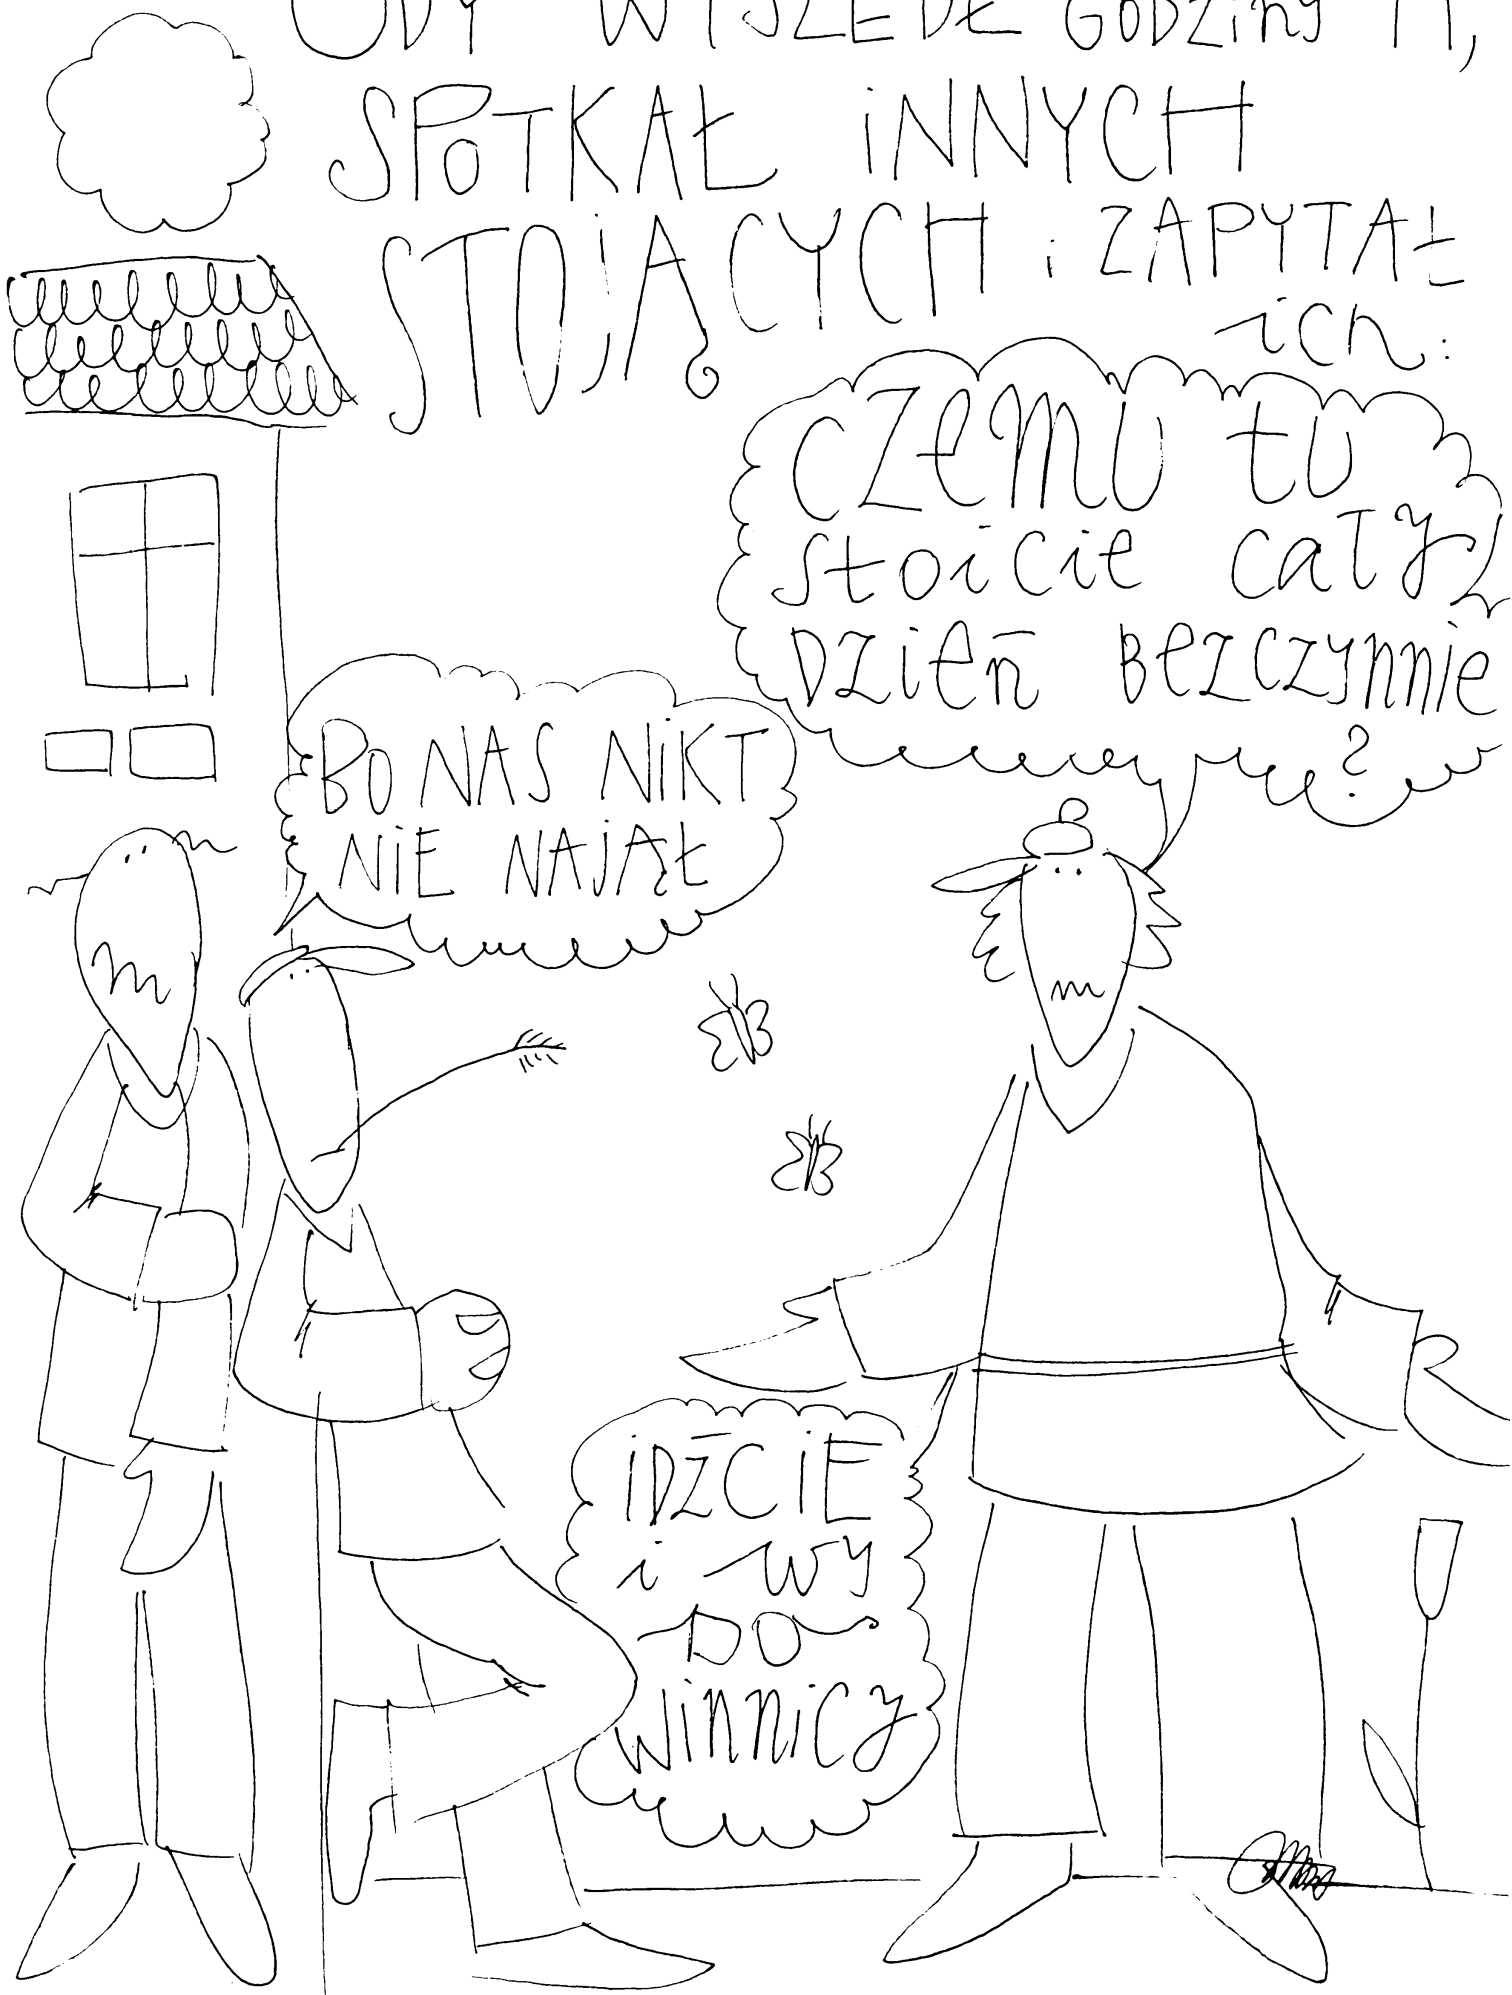 GDY WYSZEDŁ GODZINY 11,
SPOTKAŁ iNNYCH
STOJĄCYCH i ZAPYTAŁ
ich:
CZEMU tU
stoicie cały
DZień BEZCZYnnie
?
BO NAS NiKT
NiE NAJĄŁ
iDŹCiE
i WY
DO
Winnicy